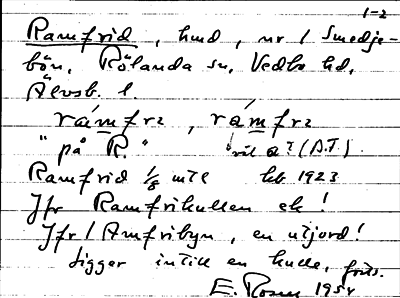 1-2
Ramfrid, hmd, nr 1 Smedje-
bön, Rölanda sn, Vedbo hd,
Älvsb. l.
rámfrɩ, rámfrɩ
"på R." (D.T.).
Ramfrid 1/8 mtl kb 1923
Jfr Ramfrikullen ek!
Jfr 1 Amfribyn, en utjord!
Ligger intill en kulle, forts.
E. Rosén 1954